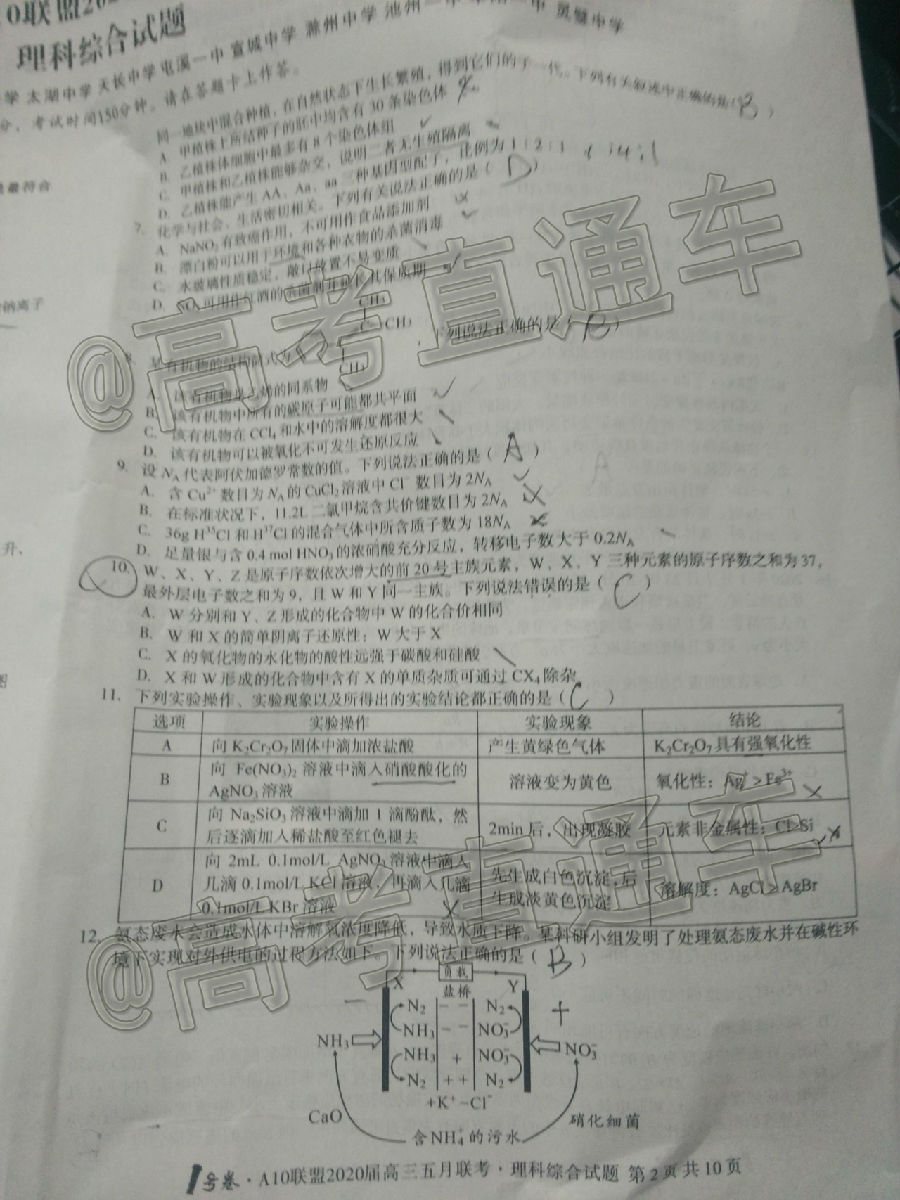 理科综合试题
太湖中学 天长中学 屯溪一中 宣城中学 滁州中学 池州一中 灵璧中学
考试时间150分钟。请在答题卡上作答。
同一地块中混合种植,在自然状态下生长繁殖,得到它们的子一代。下列有关叙述中正确的是( B )
A. 甲植株上所结种子的胚中均含有 30 条染色体
B. 乙植株体细胞中最多有 8 个染色体组
C. 甲植株和乙植株能够杂交,说明二者无生殖隔离
D. 乙植株能产生 AA、Aa、aa 三种基因型配子,比例为 1:2:1
7. 化学与社会、生活密切相关。下列有关说法正确的是( D )
A. NaNO₂有致癌作用,不可用作食品添加剂
B. 漂白粉可以用于环境和各种衣物的杀菌消毒
C. 水玻璃性质稳定,敞口放置不易变质
D.
8. 某有机物的结构简式为 下列说法正确的是( B )
CH₃
C-CH₃
CH₃
A. 该有机物是乙烯的同系物
B. 该有机物中所有的碳原子可能都共平面
C. 该有机物在 CCl₄和水中的溶解度都很大
D. 该有机物可以被氧化不可发生还原反应
9. 设 Nᴀ代表阿伏加德罗常数的值。下列说法正确的是( A )
A. 含 Cu²⁺数目为 Nᴀ的 CuCl₂溶液中 Cl⁻数目为 2Nᴀ
B. 在标准状况下,11.2L 二氯甲烷含共价键数目为 2Nᴀ
C. 36g H³⁵Cl 和 H³⁷Cl 的混合气体中所含质子数为 18Nᴀ
D. 足量银与含 0.4 mol HNO₃的浓硝酸充分反应,转移电子数大于 0.2Nᴀ
10. W、X、Y、Z 是原子序数依次增大的前 20 号主族元素,W、X、Y 三种元素的原子序数之和为 37,
最外层电子数之和为 9,且 W 和 Y 同一主族。下列说法错误的是( C )
A. W 分别和 Y、Z 形成的化合物中 W 的化合价相同
B. W 和 X 的简单阴离子还原性:W 大于 X
C. X 的氧化物的水化物的酸性远强于碳酸和硅酸
D. X 和 W 形成的化合物中含有 X 的单质杂质可通过 CX₄除杂
11. 下列实验操作、实验现象以及所得出的实验结论都正确的是( C )
选项 实验操作 实验现象 结论
A 向 K₂Cr₂O₇固体中滴加浓盐酸 产生黄绿色气体 K₂Cr₂O₇具有强氧化性
B 向 Fe(NO₃)₂ 溶液中滴入硝酸酸化的
AgNO₃溶液 溶液变为黄色 氧化性:Ag⁺>Fe³⁺
C 向 Na₂SiO₃溶液中滴加 1 滴酚酞,然
后逐滴加入稀盐酸至红色褪去 2min 后,出现凝胶 元素非金属性:Cl>Si
D 向 2mL 0.1mol/L AgNO₃溶液中滴入
几滴 0.1mol/L KCl 溶液,再滴入几滴
0.1mol/L KBr 溶液 先生成白色沉淀,后
生成淡黄色沉淀 溶解度:AgCl>AgBr
12. 氨态废水会造成水体中溶解氧浓度降低,导致水质下降。某科研小组发明了处理氨态废水并在碱性环
境下实现对外供电的过程方法如下。下列说法正确的是( B )
负载
X 盐桥 Y
N₂ - - N₂
NH₃ - - NO₃⁻
NH₃ NO₃⁻
NH₃ + NO₃⁻
N₂ + + N₂
+K⁺ -Cl⁻
CaO 硝化细菌
含NH₄⁺的污水
1号卷·A10联盟2020届高三五月联考·理科综合试题 第2页共10页
@高考直通车
@高考直通车